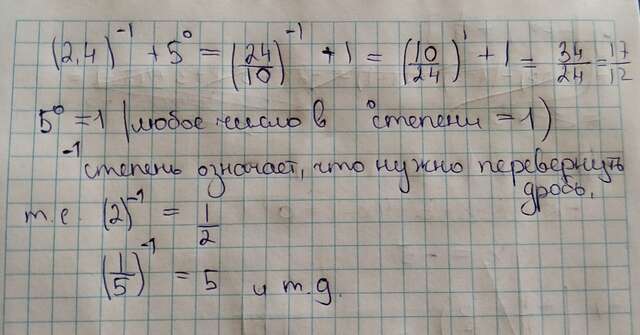 (2,4)⁻¹ + 5⁰ = (24/10)⁻¹ + 1 = (10/24)¹ + 1 = 34/24 = 17/12
5⁰ = 1 (любое число в ⁰ степени = 1)
⁻¹ степень означает, что нужно перевернуть
дробь,
т.е. (2)⁻¹ = 1/2
(1/5)⁻¹ = 5 и т.д.